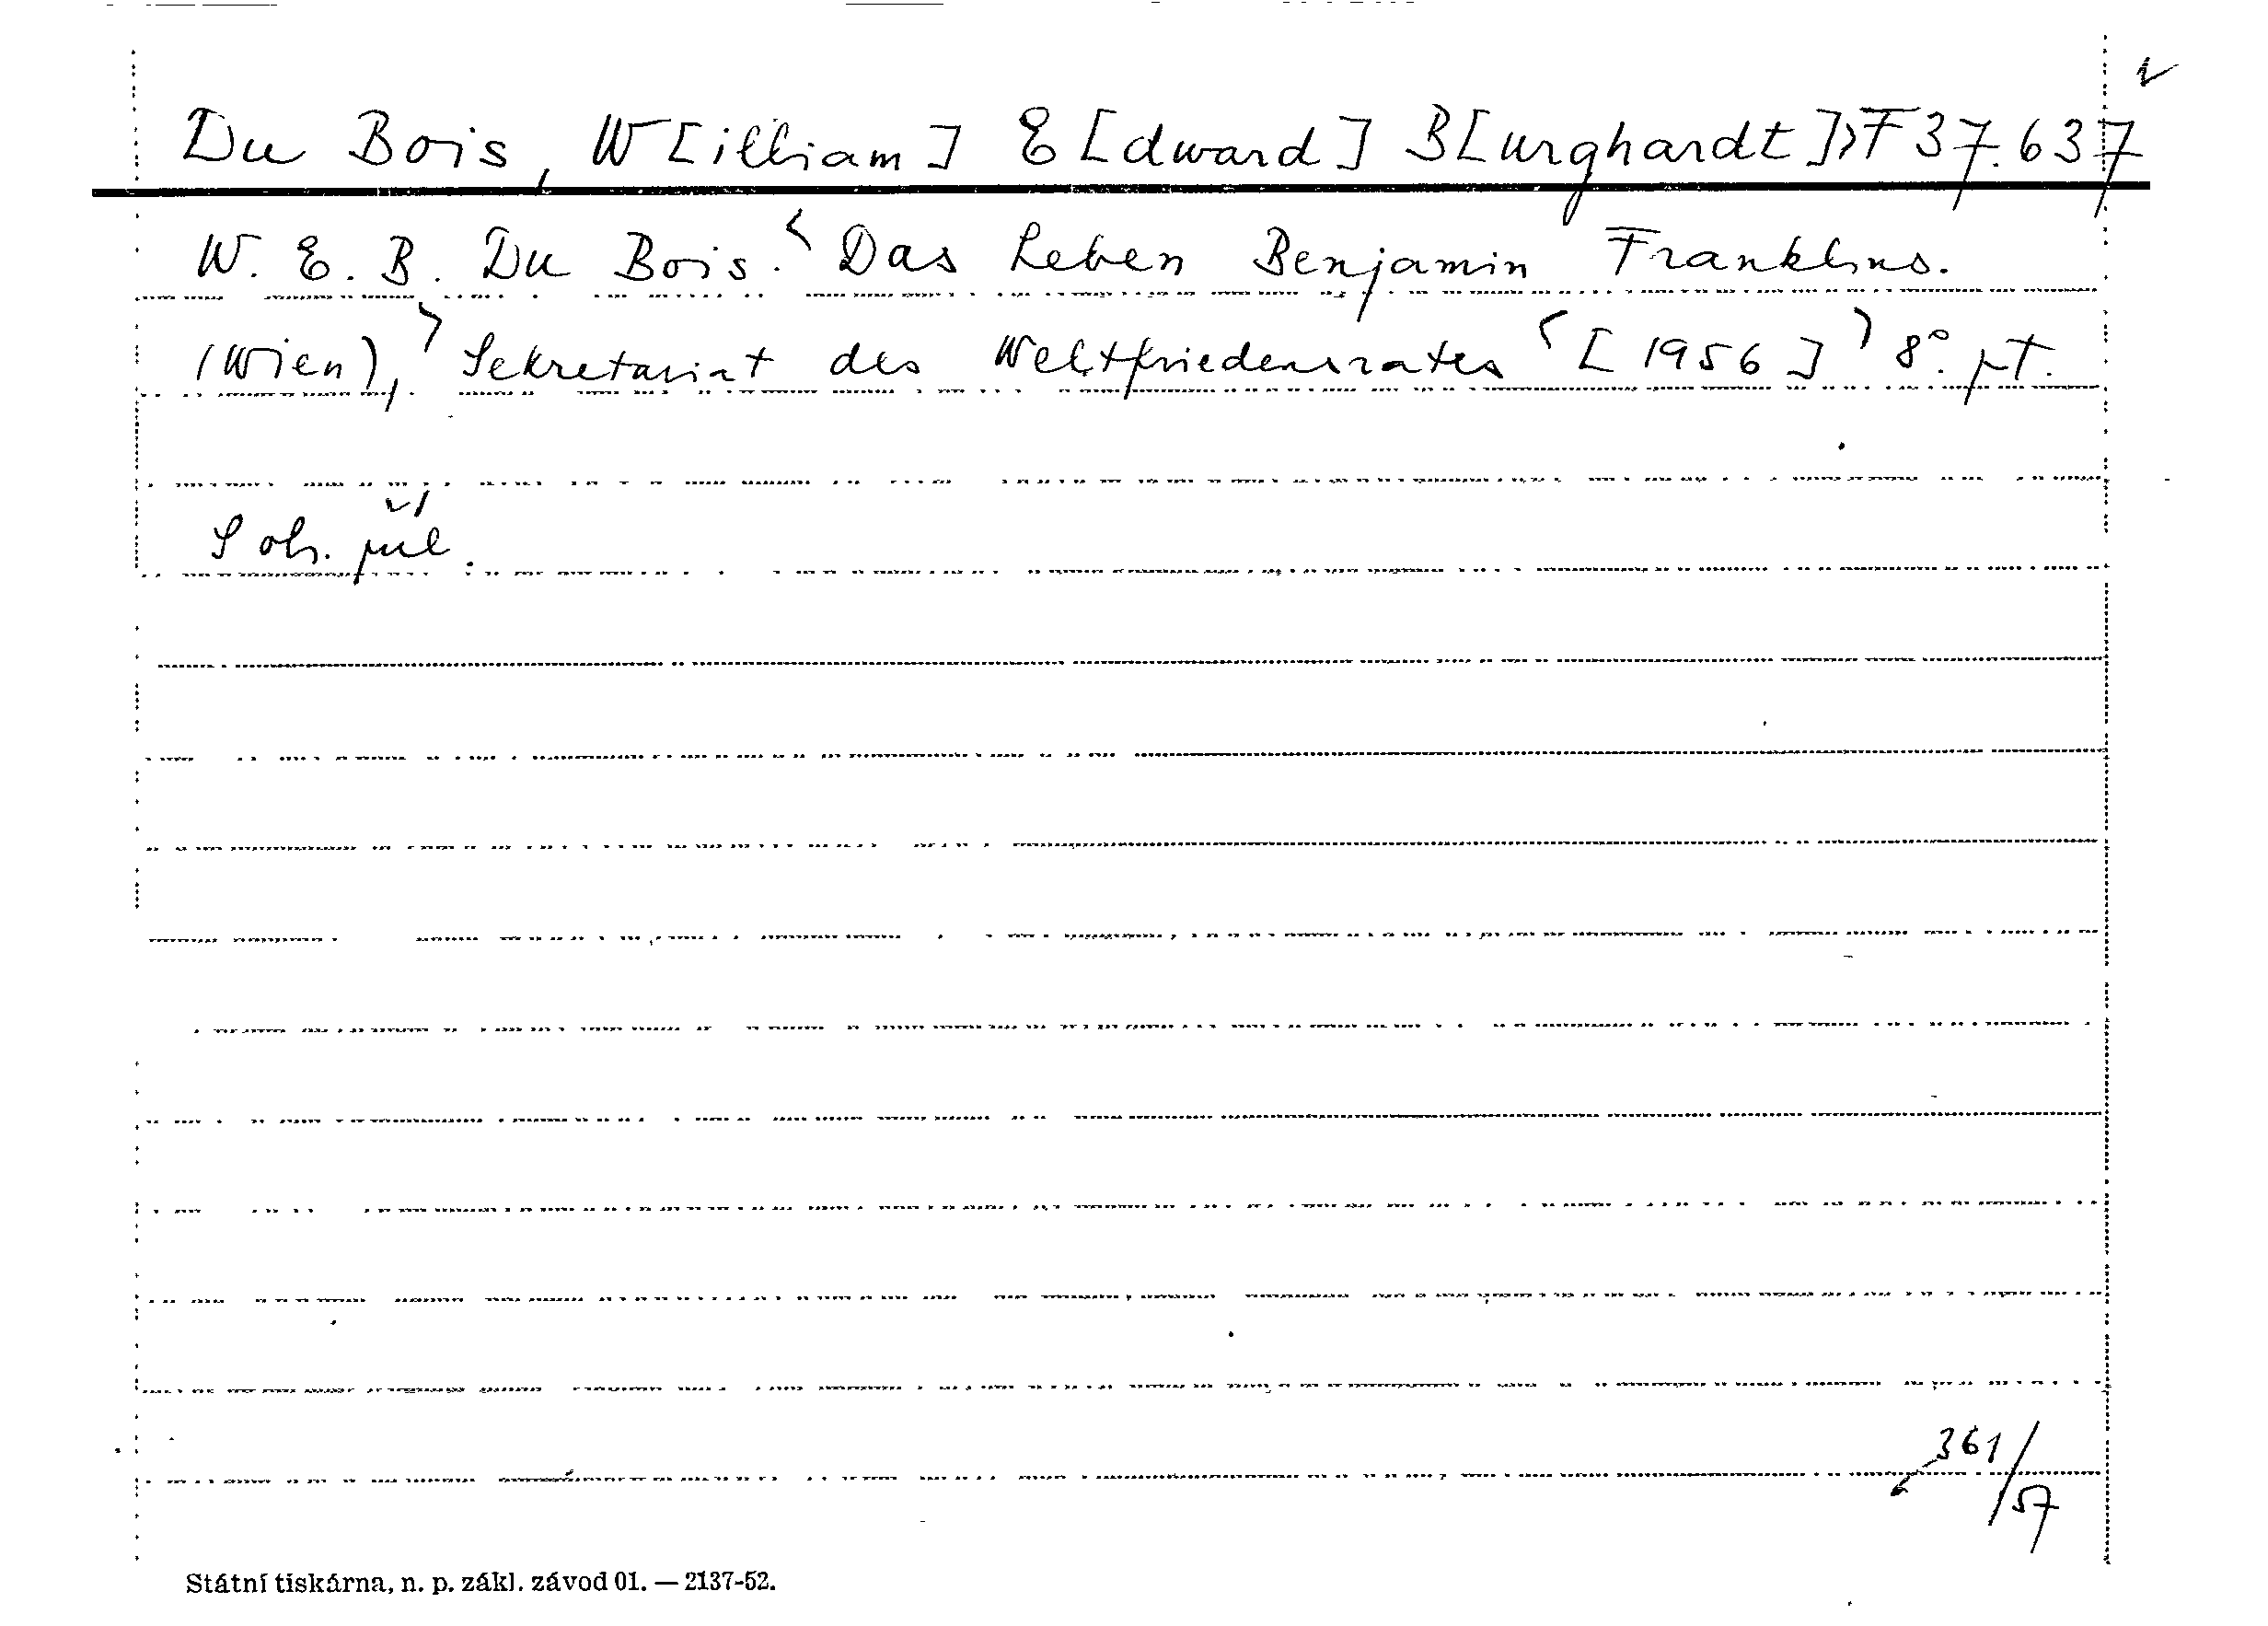 Du Bois, W[illiam] E[dward] B[urghardt]> F 37.637
W. E. B. Du Bois. < Das Leben Benjamin Franklins.
(Wien), > Sekretariat des Weltfriedensrates < [1956] > 8°. pt.
S obr. příl.
361/57
Státní tiskárna, n. p. zákl. závod 01. — 2137-52.